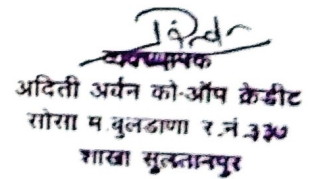 व्यवस्थापक
अदिती अर्बन को-ऑप क्रेडीट
सोसा म. बुलडाणा र. नं. ३३७
शाखा सुलतानपुर